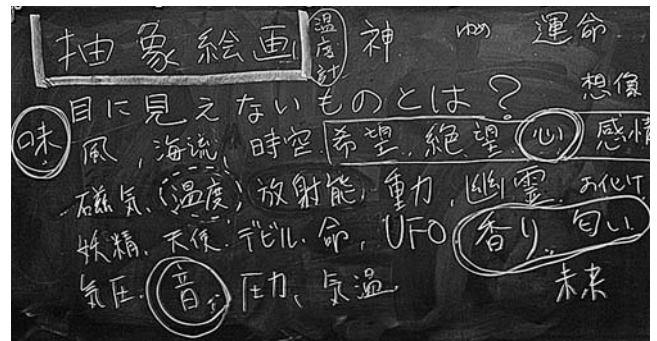 抽象絵画 温度計 神 ゆめ 運命
目に見えないものとは? 想像
味 風、海流、時空、希望、絶望、心、感情
磁気、温度、放射能、重力、幽霊、お化け
妖精、天使、デビル、命、UFO、香り、匂い
気圧、音、圧力、気温、 未来